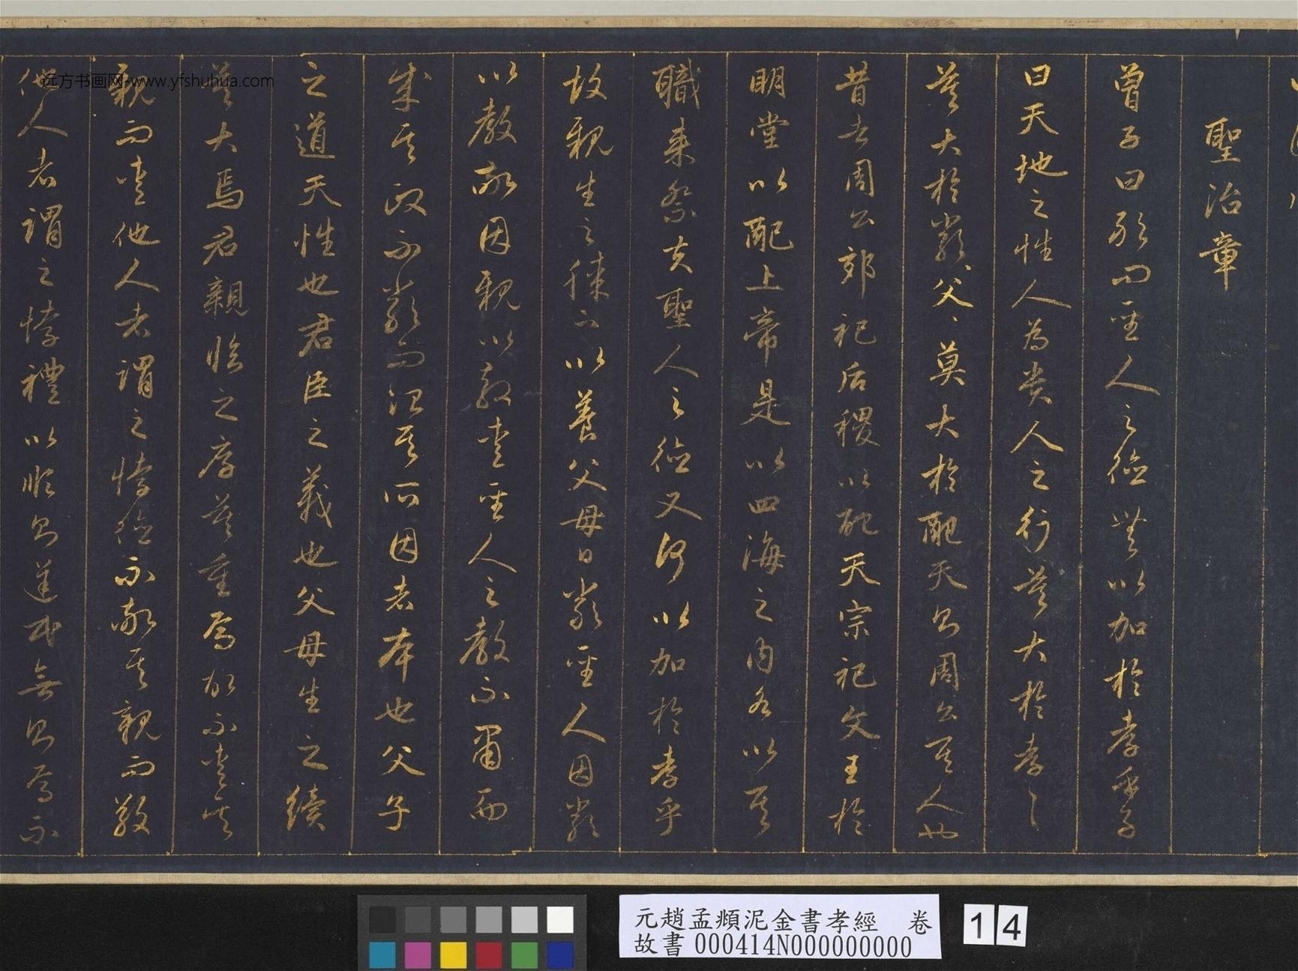 聖治章
曾子曰敢問聖人之德無以加於孝乎子
曰天地之性人為貴人之行莫大於孝〻
莫大於嚴父〻莫大於配天則周公其人也
昔者周公郊祀后稷以配天宗祀文王於
明堂以配上帝是以四海之內各以其
職來祭夫聖人之德又何以加於孝乎
故親生之膝下以養父母日嚴聖人因嚴
以教敬因親以教愛聖人之教不肅而
成其政不嚴而治其所因者本也父子
之道天性也君臣之義也父母生之續
莫大焉君親臨之厚莫重焉故不愛其
親而愛他人者謂之悖德不敬其親而敬
他人者謂之悖禮以順則逆民無則焉不
远方书画网-www.yfshuhua.com
元趙孟頫泥金書孝經 卷
故書 000414N000000000
14